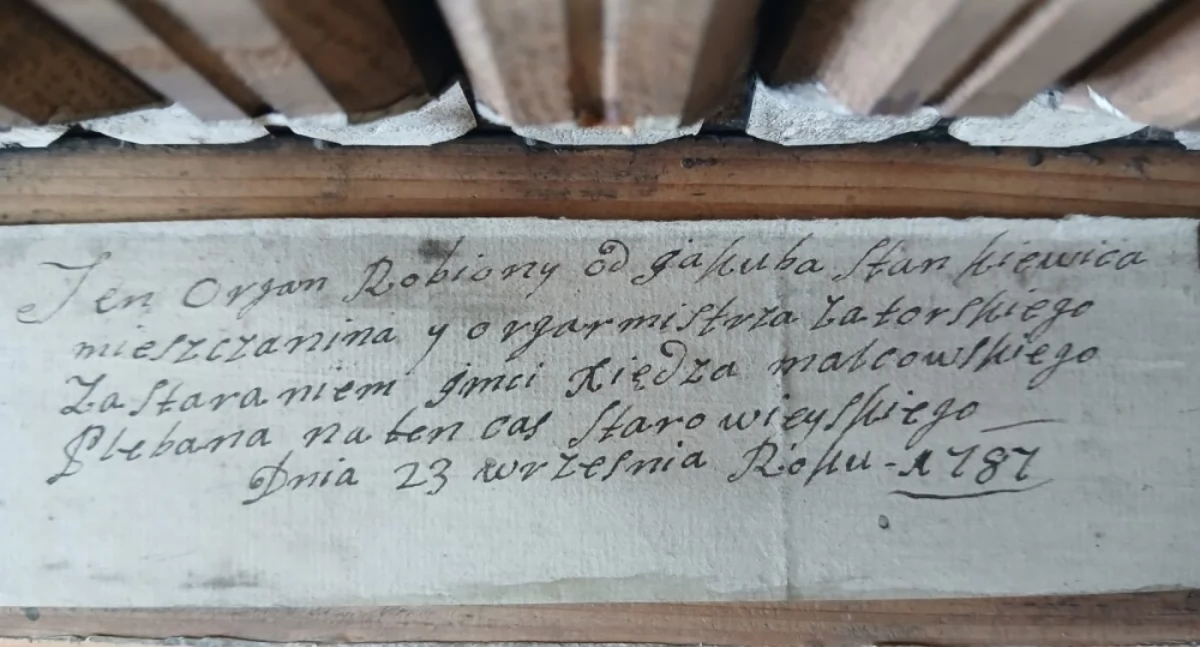 Ten Organ Robiony od jakuba Stankiewica
mieszczanina y orgarmistrza Zatorskiego
Za staraniem jmci Xiędza malcowskiego
Plebana na ten cas starowieyskiego
Dnia 23 wrzesnia Roku - 1787